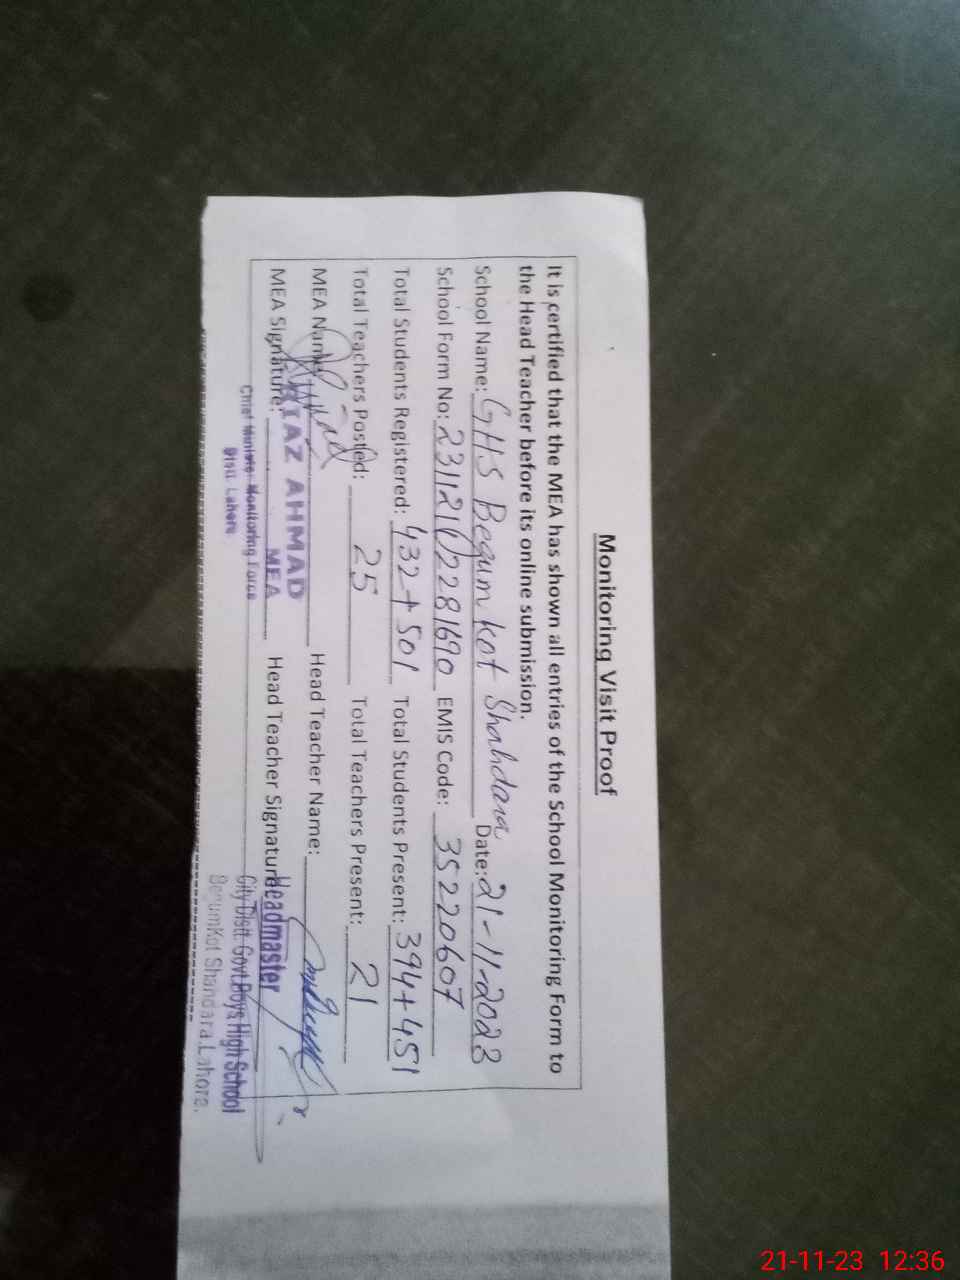 Monitoring Visit Proof
It is certified that the MEA has shown all entries of the School Monitoring Form to
the Head Teacher before its online submission.
School Name: GHS Begum kot Shahdara Date: 21-11-2023
School Form No: EMIS Code: 35220607
Total Students Registered: 432+501 Total Students Present: 394+451
Total Teachers Posted: 25 Total Teachers Present: 21
MEA Name: Head Teacher Name:
RIAZ AHMAD
MEA Signature: MEA Head Teacher Signature:
Headmaster
Chief Minister Monitoring Force
Distt. Lahore
City Distt. Govt.Boys High School
BegumKot Shahdara Lahore.
21-11-23 12:36